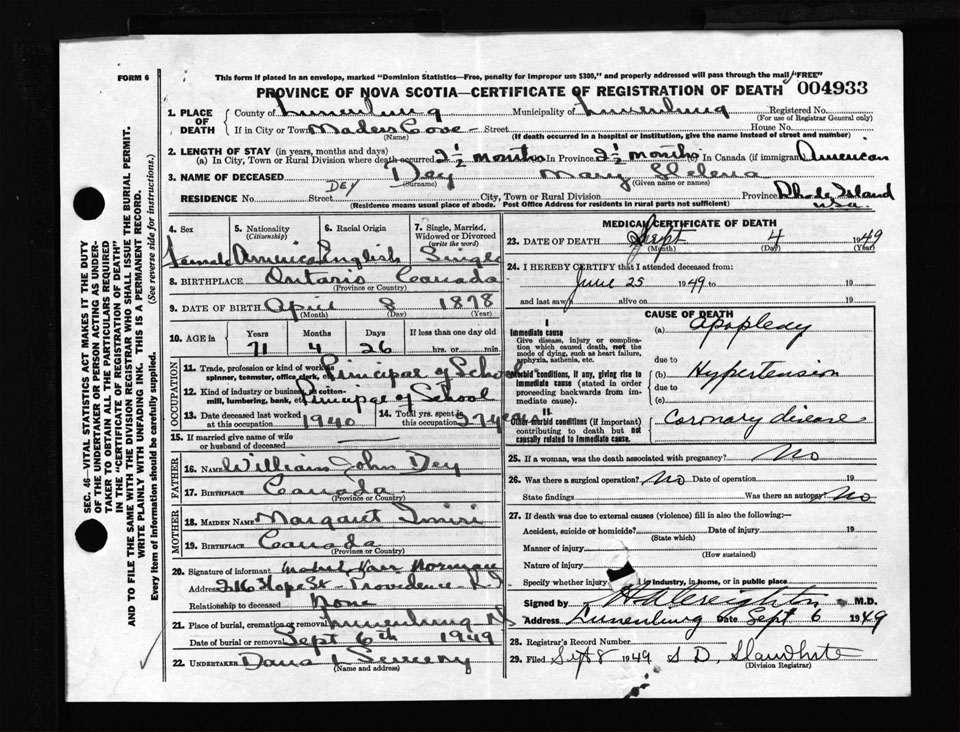 FORM 6
This form if placed in an envelope, marked "Dominion Statistics—Free, penalty for improper use $300," and properly addressed will pass through the mail "FREE"
PROVINCE OF NOVA SCOTIA—CERTIFICATE OF REGISTRATION OF DEATH 004933
1. PLACE OF DEATH County of Lunenburg Municipality of Lunenburg Registered No.
(For use of Registrar General only)
If in City or Town Maders Cove Street House No.
(Name) (If death occurred in a hospital or institution, give the name instead of street and number)
2. LENGTH OF STAY (in years, months and days)
(a) In City, Town or Rural Division where death occurred 2½ months In Province 2½ months In Canada (if immigrant) American
3. NAME OF DECEASED Dey Mary Helena
(Surname) (Given name or names)
RESIDENCE No. Street DEY City, Town or Rural Division Province Rhode Island U.S.A.
(Residence means usual place of abode. Post Office Address for residents in rural parts not sufficient)
4. Sex 5. Nationality (Citizenship) 6. Racial Origin 7. Single, Married, Widowed or Divorced (write the word)
Female American English Single
8. BIRTHPLACE Ontario Canada
(Province or Country)
9. DATE OF BIRTH April 8 1878
(Month) (Day) (Year)
10. AGE in Years Months Days If less than one day old
71 4 26 hrs. or min.
OCCUPATION
11. Trade, profession or kind of work as spinner, teamster, office clerk, etc. Principal of School
12. Kind of industry or business, as cotton-mill, lumbering, bank, etc. Principal of School
13. Date deceased last worked at this occupation 1940 14. Total yrs. spent in this occupation 27 years
15. If married give name of wife or husband of deceased
FATHER
16. NAME William John Dey
17. BIRTHPLACE Canada
(Province or Country)
MOTHER
18. MAIDEN NAME Margaret
19. BIRTHPLACE Canada
(Province or Country)
20. Signature of informant Norman
Address 216 Hope St Providence R I
Relationship to deceased None
21. Place of burial, cremation or removal Lunenburg NS
Date of burial or removal Sept 6th 1949
22. UNDERTAKER Dana L Sweeny
(Name and address)
MEDICAL CERTIFICATE OF DEATH
23. DATE OF DEATH Sept 4 1949
(Month) (Day) (Year)
24. I HEREBY CERTIFY that I attended deceased from:
June 25 1949 to 19
and last saw alive on 19
CAUSE OF DEATH
I
Immediate cause
Give disease, injury or complication which caused death, not the mode of dying, such as heart failure, asphyxia, asthenia, etc.
(a) Apoplexy
due to
Morbid conditions, if any, giving rise to immediate cause (stated in order proceeding backwards from immediate cause).
(b) Hypertension
due to
(c)
II
Other morbid conditions (if important) contributing to death but not causally related to immediate cause.
Coronary disease
25. If a woman, was the death associated with pregnancy? No
26. Was there a surgical operation? No Date of operation 19
State findings Was there an autopsy? No
27. If death was due to external causes (violence) fill in also the following:
Accident, suicide or homicide? Date of injury 19
(State which)
Manner of injury
(How sustained)
Nature of injury
Specify whether injury in industry, in home, or in public place
Signed by H A Creighton M.D.
Address Lunenburg Date Sept 6 1949
28. Registrar's Record Number
29. Filed Sept 8 1949 S D. Slauwhite
(Division Registrar)
SEC. 46—VITAL STATISTICS ACT MAKES IT THE DUTY
OF THE UNDERTAKER OR PERSON ACTING AS UNDER-
TAKER TO OBTAIN ALL THE PARTICULARS REQUIRED
IN THE "CERTIFICATE OF REGISTRATION OF DEATH"
AND TO FILE THE SAME WITH THE DIVISION REGISTRAR WHO SHALL ISSUE THE BURIAL PERMIT.
WRITE PLAINLY WITH UNFADING INK. THIS IS A PERMANENT RECORD.
Every item of information should be carefully supplied. (See reverse side for instructions.)